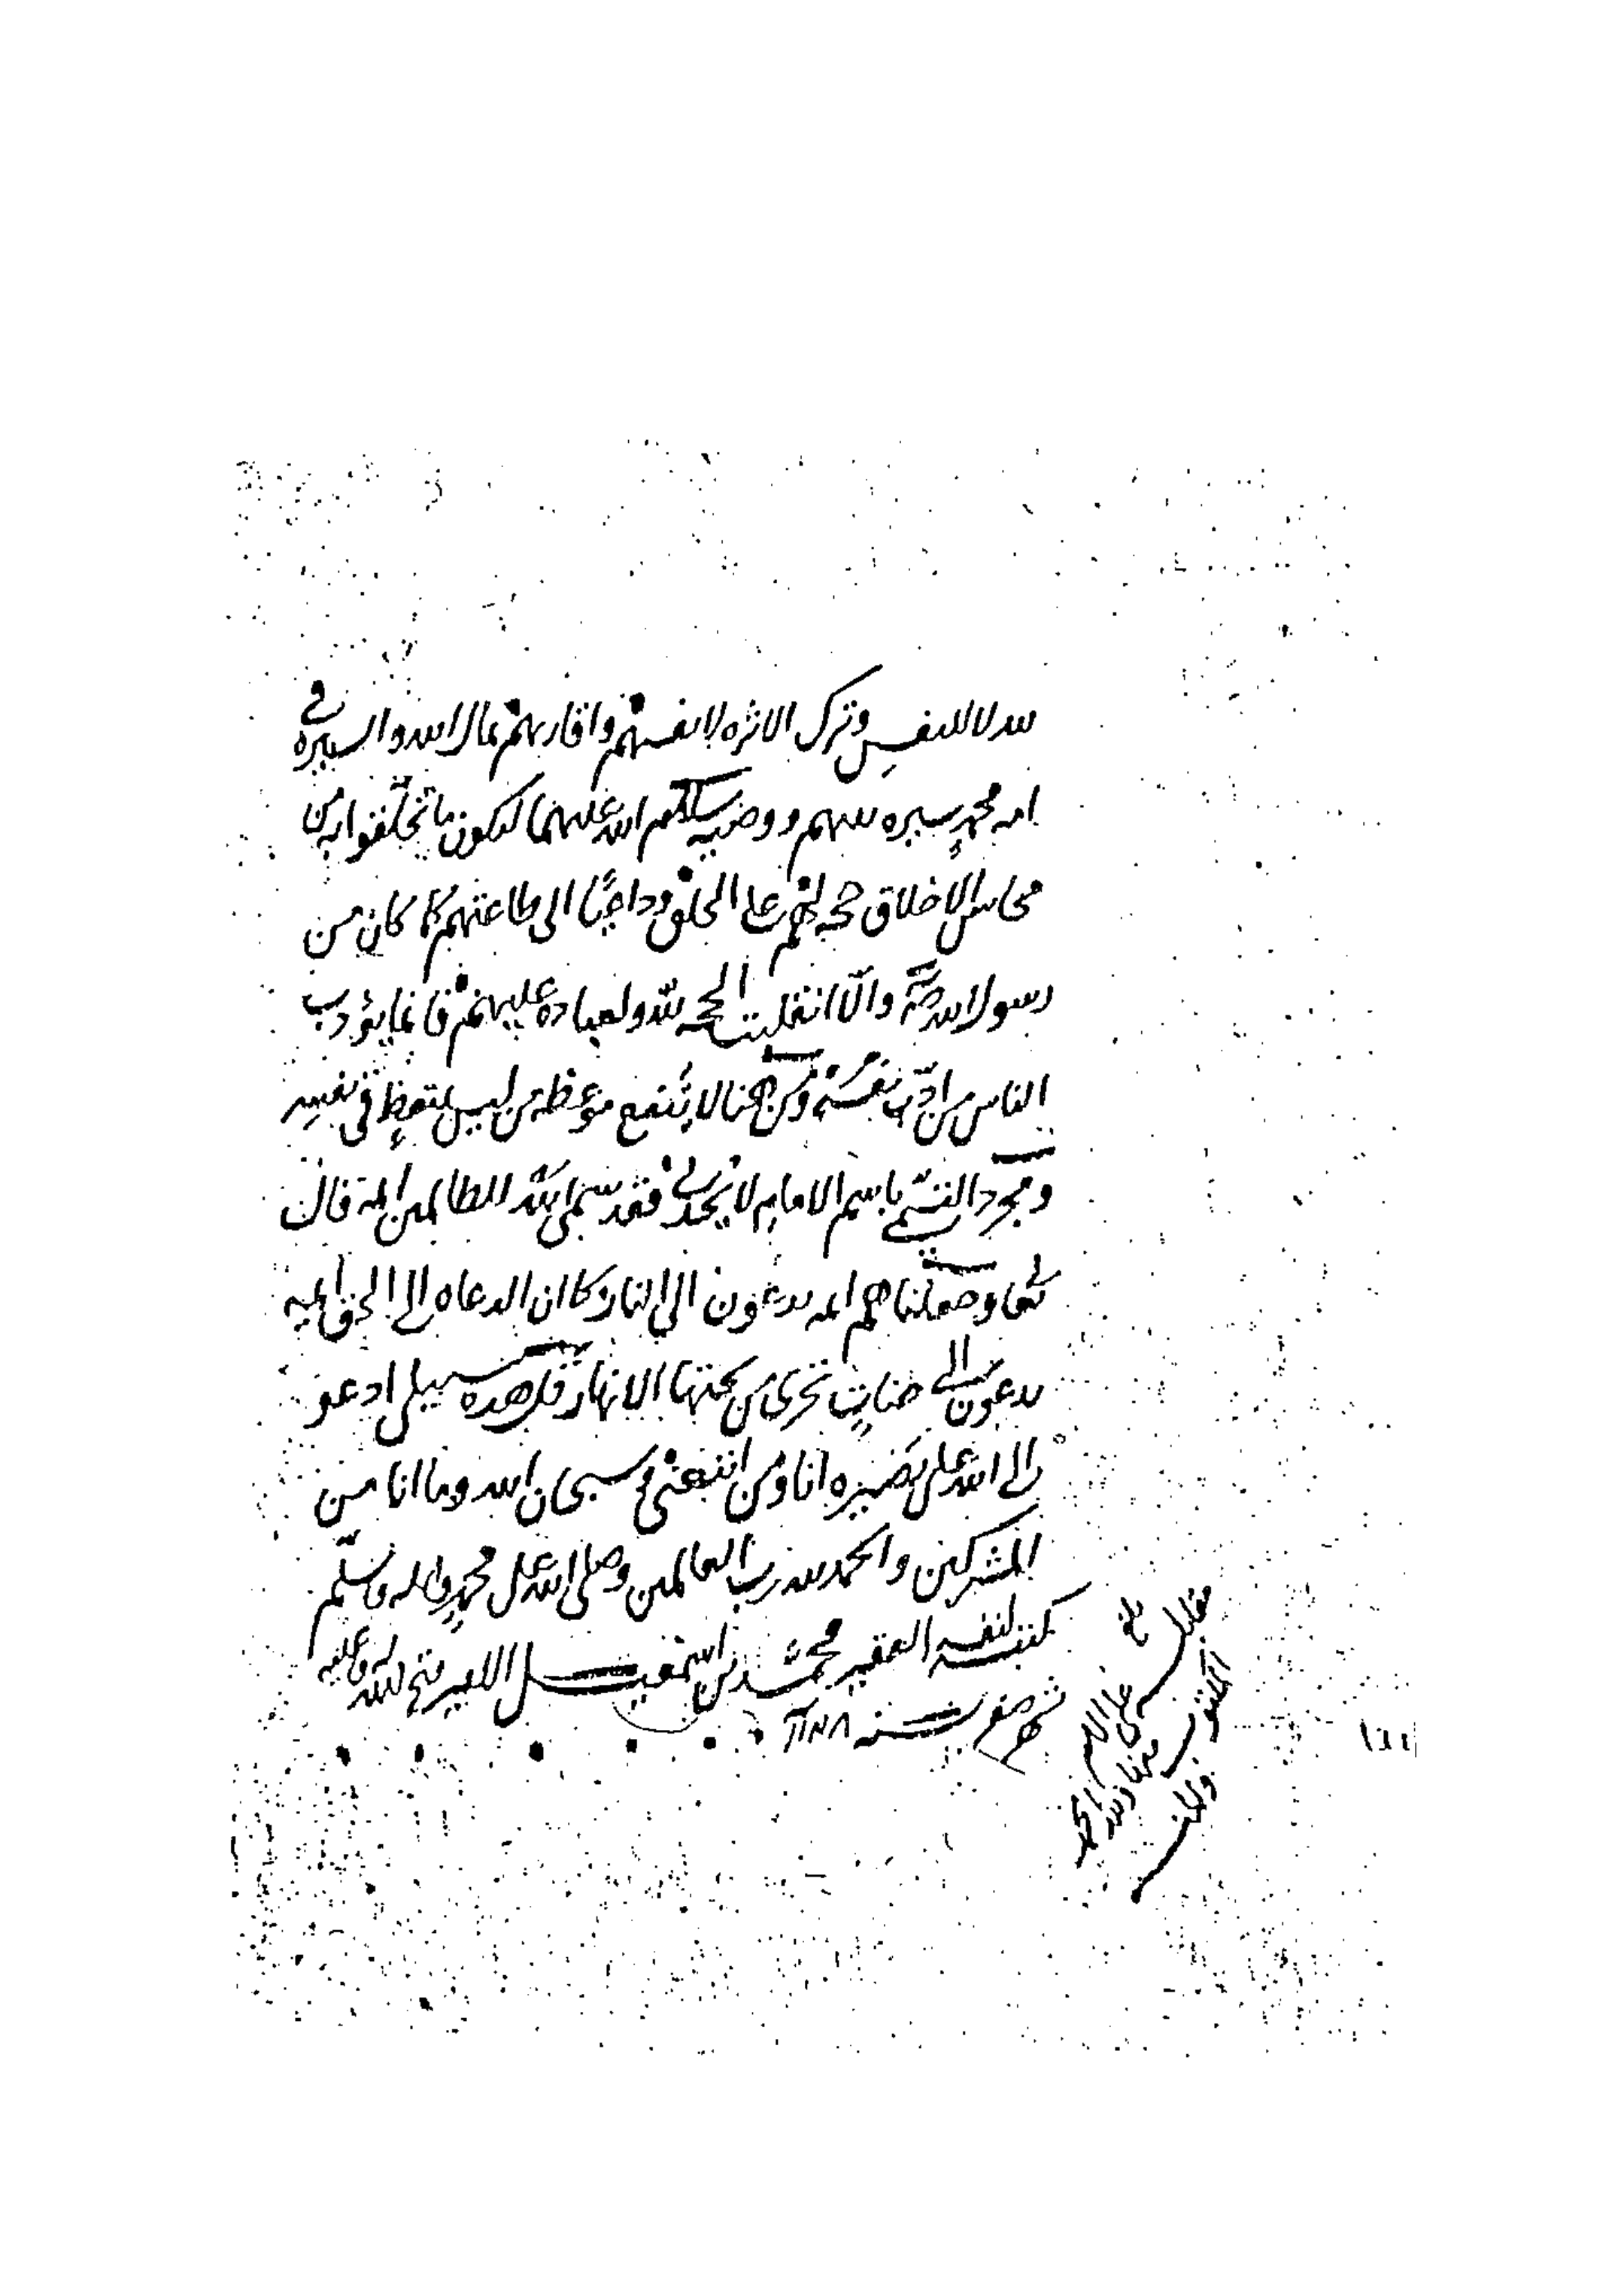 لله لا للنفس وترك الاثره لانفسهم واقاربهم بمال الله والسيره في
امه محمد سيره نبيهم ووصيه سلام الله عليهما ليكون ما تخلقوا به من
محاسن الاخلاق حجه لهم على الخلق وداعيًا الى طاعتهم كما كان من
رسول الله صلم والّا انقلبت الحجه لله ولعباده عليهم فانما يؤدب
الناس من ادّب نفسه ومن هنا لا ينتفع موعظه من ليس بمتعظٍ في نفسه
ومجرد التسمي باسم الامام لا يجدي فقد سمى الله الظالمين ائمة قال
تعا وجعلناهم ائمه يدعون الى النار وكما ان الدعاه الى الحق ائمه
يدعون الى جناتٍ تجري من تحتها الانهار قل هذه سبيلي ادعو
الى الله على بصيره انا ومن اتبعني وسبحان الله وما انا من
المشركين والحمد لله رب العالمين وصلى الله على محمدٍ واله وسلّم
كتبه لنفسه الفقير محمد بن اسمعيل الامير فتح الله عليه
شهر صفر سنه
على الام